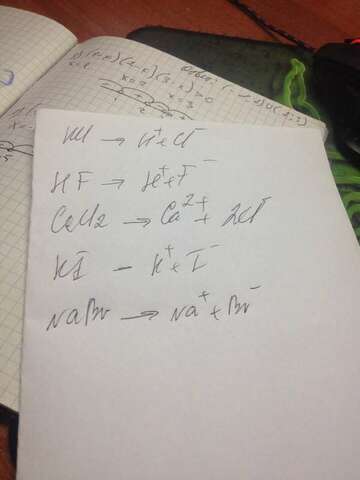 x=2 x=3
1 2 3
HCl → H⁺ + Cl⁻
HF → H⁺ + F⁻
CaCl2 → Ca²⁺ + 2Cl⁻
KI – K⁺ + I⁻
NaBr → Na⁺ + Br⁻